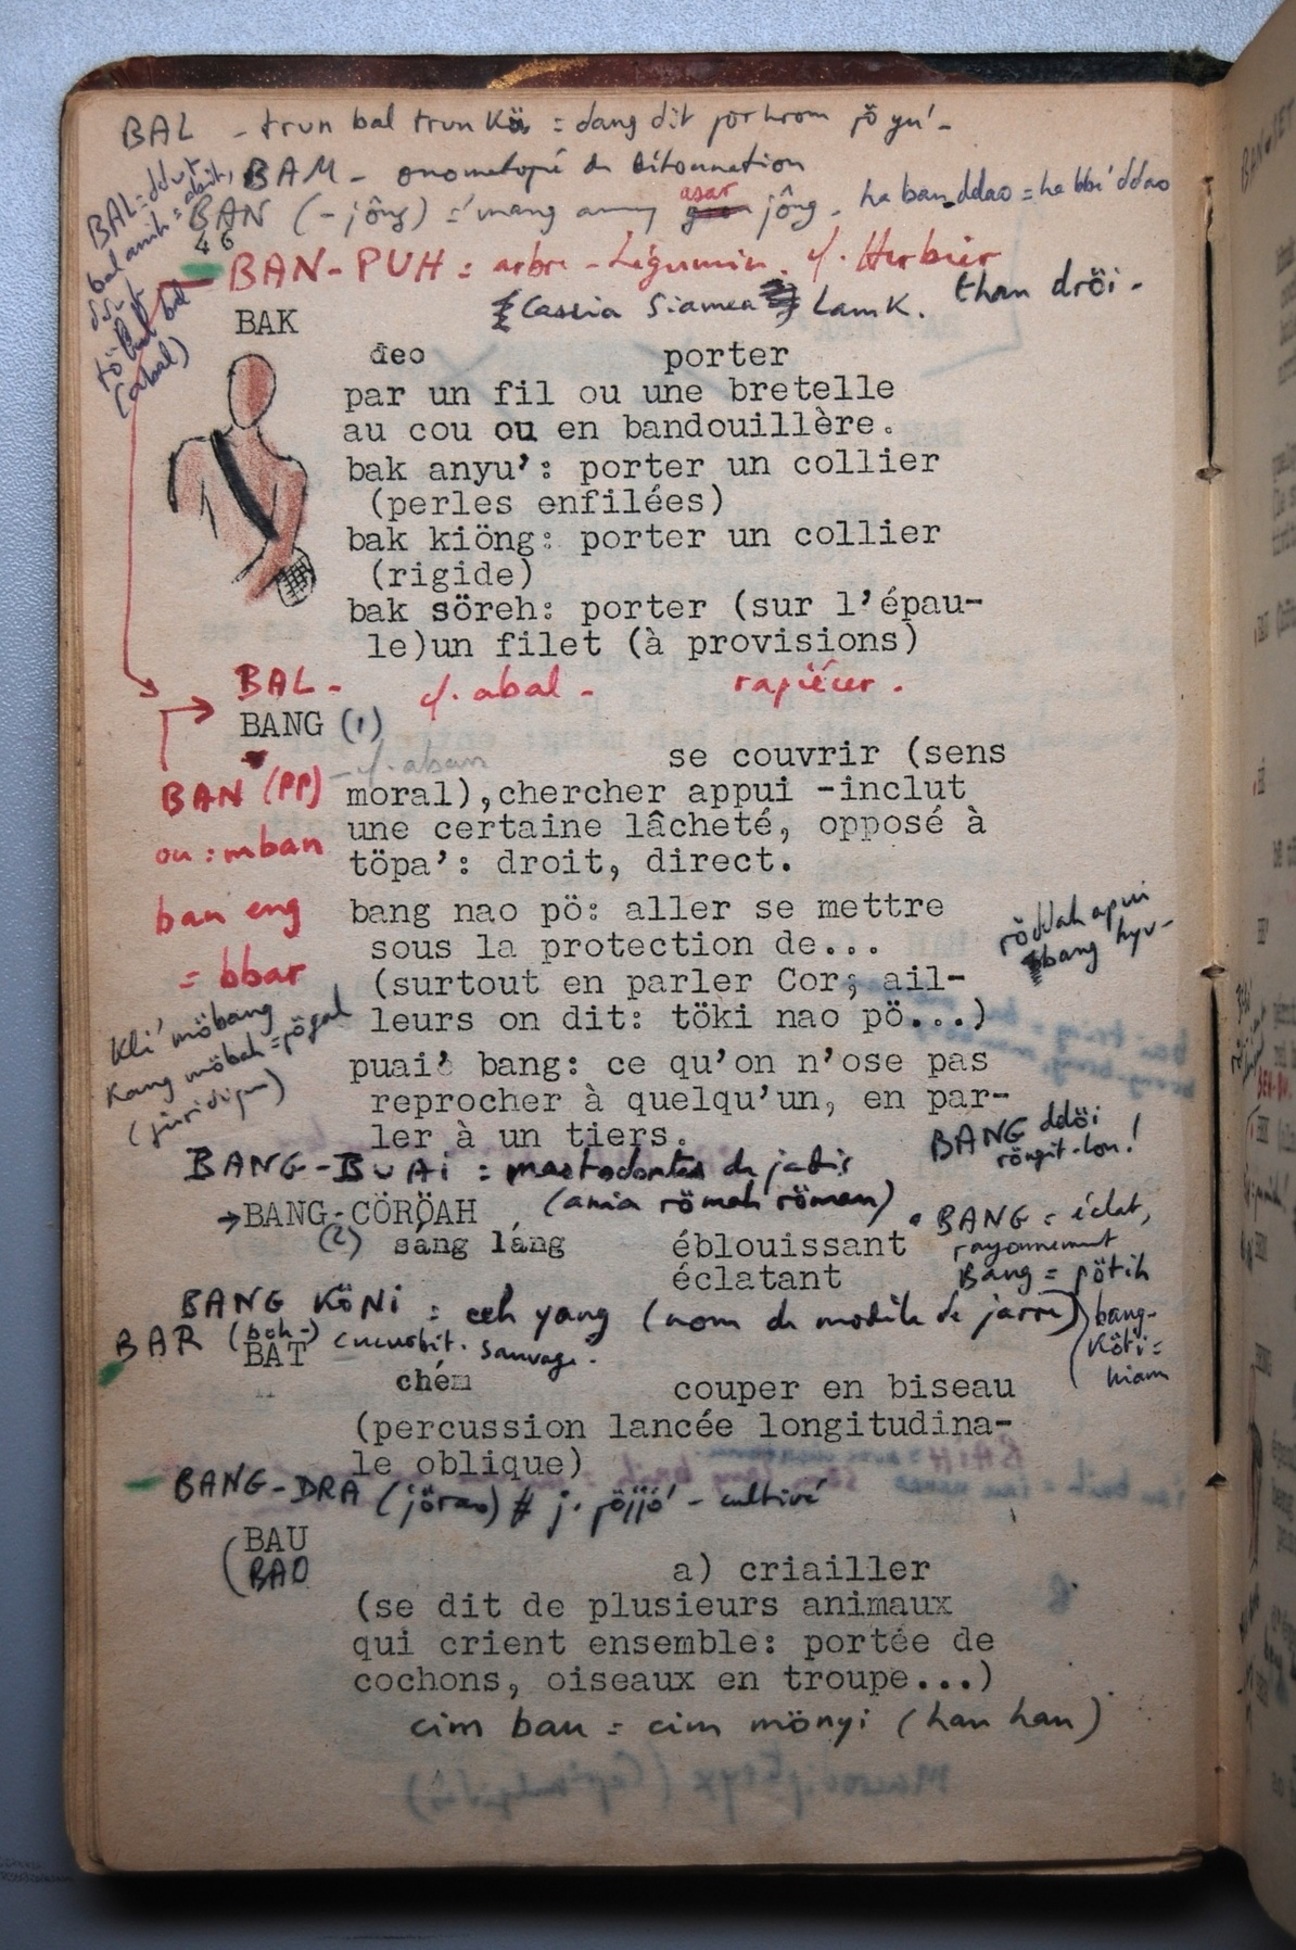 BAL - trun bal trun Kö = dang dit pörhrom pö yu'-
BAM - onomatopé de détonnation
BAN (-jông) = mang asar jông - ha ban ddao = ha bbi' ddao
46
BAN-PUH = arbre - Légumin. cf. Herbier
Cassia Siamea LamK. than dröi -
BAL =
(abal)
BAK
đeo porter
par un fil ou une bretelle
au cou ou en bandouillère.
bak anyu': porter un collier
(perles enfilées)
bak kiöng: porter un collier
(rigide)
bak söreh: porter (sur l'épau-
le)un filet (à provisions)
BAL - cf. abal - rapiécer.
BANG (1)
- cf. aban
se couvrir (sens
moral),chercher appui -inclut
une certaine lâcheté, opposé à
töpa': droit, direct.
BAN (PP)
ou : mban
ban eng
= bbar
bang nao pö: aller se mettre
sous la protection de...
(surtout en parler Cor; ail-
leurs on dit: töki nao pö...)
röddah apui
bang hyu-
Kli' möbang
Kang möbah = pögal
(juridique)
puai' bang: ce qu'on n'ose pas
reprocher à quelqu'un, en par-
ler à un tiers.
BANG ddöi
röngit-lon!
BANG-BUAI : mastodontes de jadis
(ania römeh römen)
→BANG-CÖRÖAH
(2) sáng láng éblouissant
éclatant
• BANG = éclat,
rayonnement
Bang = pötih
bang-
Köti =
hiam
BANG KÖNI : ceh yang (nom de modèle de jarre)
BAR (boh-) cucurbit. sauvage.
BAT
chém couper en biseau
(percussion lancée longitudina-
le oblique)
BANG-DRA (jörao) # j. pöjjö' - cultivé
BAU
BAO
a) criailler
(se dit de plusieurs animaux
qui crient ensemble: portée de
cochons, oiseaux en troupe...)
cim bau = cim mönyi (han han)